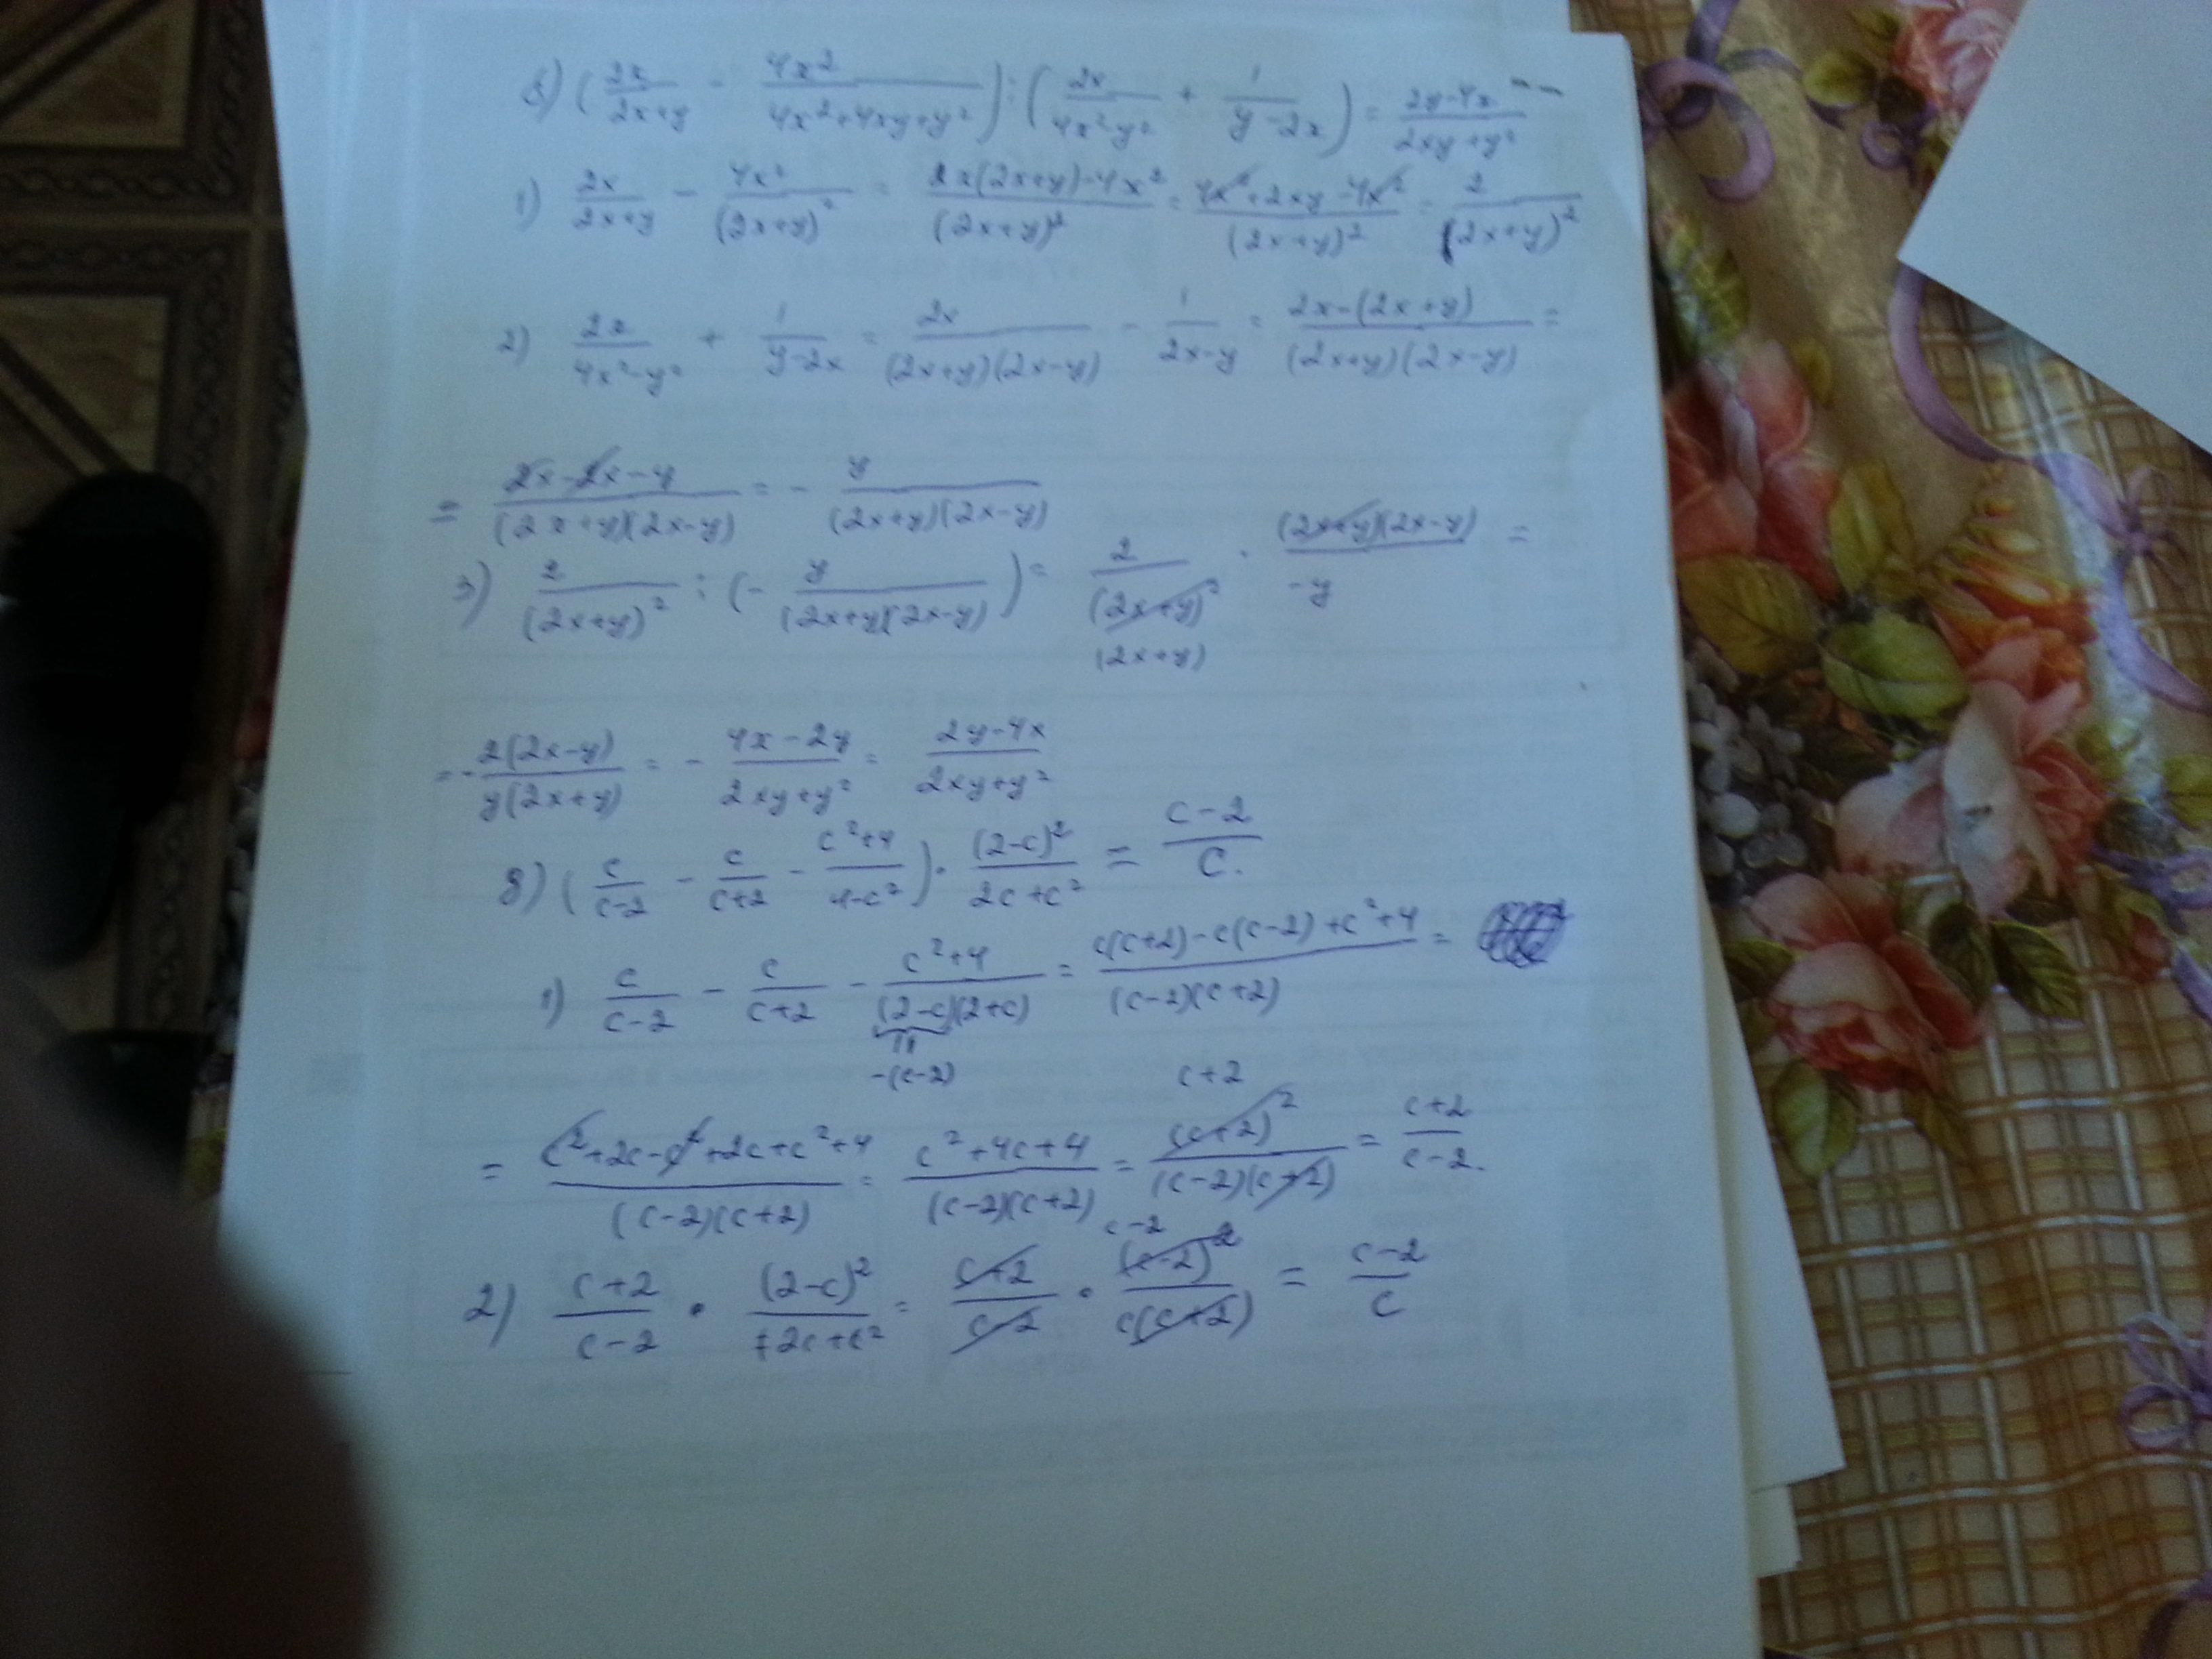 б) (2x/(2x+y) - 4x²/(4x²+4xy+y²)) : (2x/(4x²-y²) + 1/(y-2x)) = (2y-4x)/(2xy+y²)
1) 2x/(2x+y) - 4x²/(2x+y)² = (2x(2x+y)-4x²)/(2x+y)² = (4x²+2xy-4x²)/(2x+y)² = 2/(2x+y)²
2) 2x/(4x²-y²) + 1/(y-2x) = 2x/((2x+y)(2x-y)) - 1/(2x-y) = (2x-(2x+y))/((2x+y)(2x-y)) =
= (2x-2x-y)/((2x+y)(2x-y)) = - y/((2x+y)(2x-y))
3) 2/(2x+y)² : (- y/((2x+y)(2x-y))) = 2/(2x+y)² · ((2x+y)(2x-y))/(-y) =
(2x+y)
= - 2(2x-y)/(y(2x+y)) = - (4x-2y)/(2xy+y²) = (2y-4x)/(2xy+y²)
8) (c/(c-2) - c/(c+2) - (c²+4)/(4-c²)) · (2-c)²/(2c+c²) = (c-2)/c.
1) c/(c-2) - c/(c+2) - (c²+4)/((2-c)(2+c)) = (c(c+2)-c(c-2)+c²+4)/((c-2)(c+2)) =
-(c-2)
c+2
= (c²+2c-c²+2c+c²+4)/((c-2)(c+2)) = (c²+4c+4)/((c-2)(c+2)) = (c+2)²/((c-2)(c+2)) = (c+2)/(c-2).
c-2
2) (c+2)/(c-2) · (2-c)²/(2c+c²) = (c+2)/(c-2) · (c-2)²/(c(c+2)) = (c-2)/c